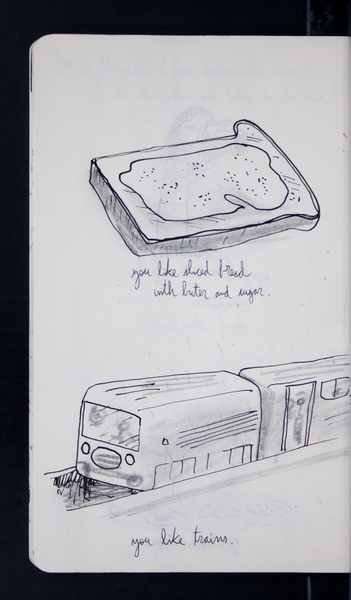 you like sliced bread
with buter and sugar.
you like trains.